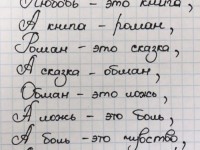 Любовь – это книга,
А книга – роман,
Роман – это сказка,
А сказка – обман,
Обман – это ложь,
А ложь – это боль,
А боль – это чувство,